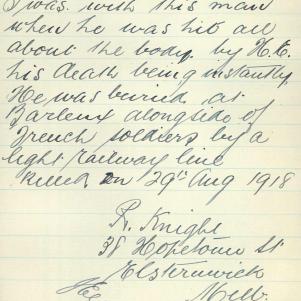 I was with this man
when he was hit all
about the body by H.E.
his death being instantly
He was buried at
Barleux alongside of
French soldiers by a
light railway line
killed on 29th Aug 1918
R. Knight
38 Hopetoun St
Elsternwick
Melb.